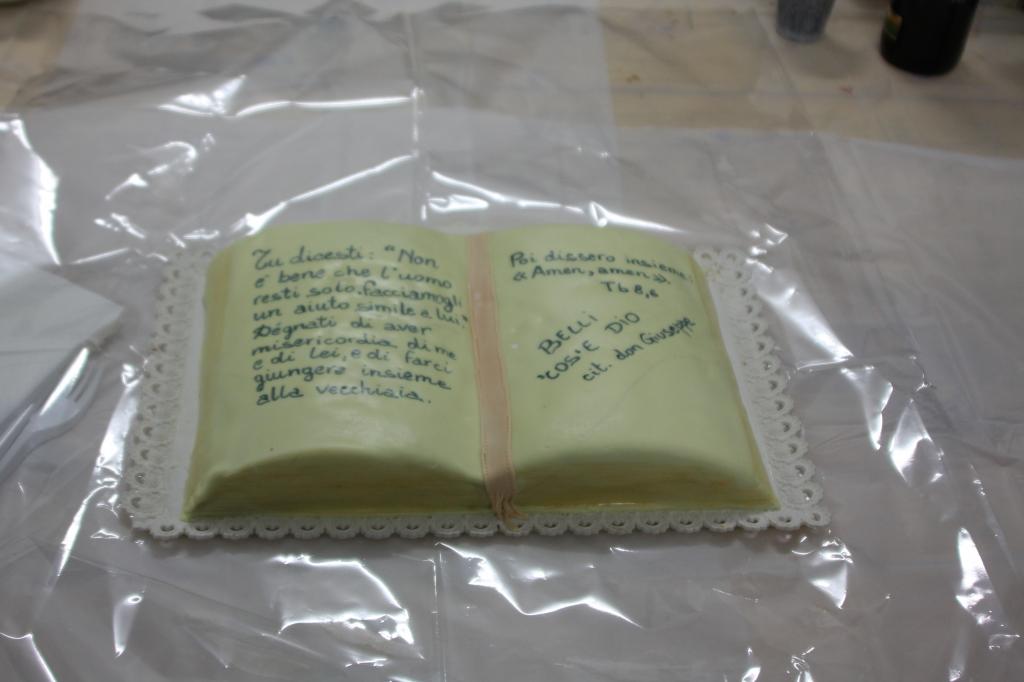 Tu dicesti: "Non
e' bene che l'uomo
resti solo. facciamogli
un aiuto simile a lui."
Dégnati di aver
misericordia di me
e di lei, e di farci
giungere insieme
alla vecchiaia.
Poi dissero insieme:
«Amen, amen».
Tb 8,6
BELLI
COS'E DIO
cit. don Giuseppe